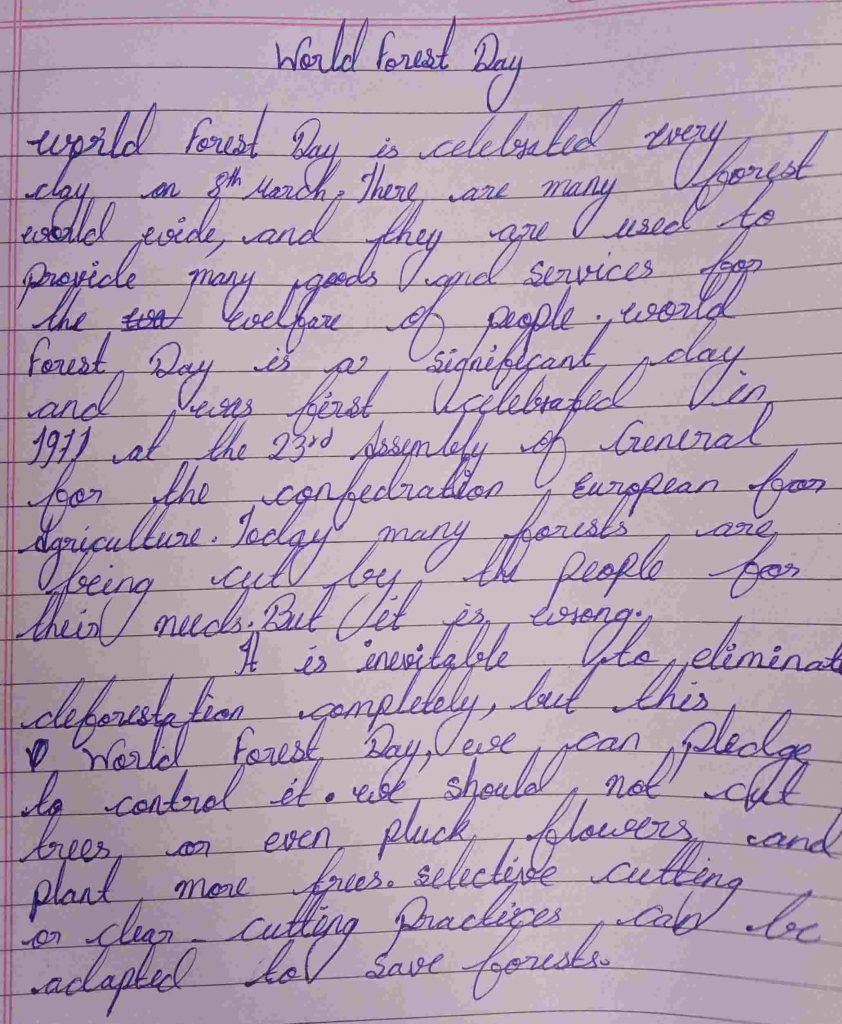 World Forest Day
world Forest Day is celebrated every
day on 8th March. There are many forest
world wide, and they are used to
provide many goods and services for
the welfare of people. world
Forest Day is a significant day
and was first celebrated in
1971 at the 23rd Assembly of General
for the confedration European for
Agriculture. Today many forests are
being cut by the people for
their needs. But it is wrong.
It is inevitable to eliminate
deforestation completely, but this
World Forest Day, we can pledge
to control it. we should not cut
trees or even pluck flowers and
plant more trees. selective cutting
or clear-cutting practices can be
adapted to save forests.